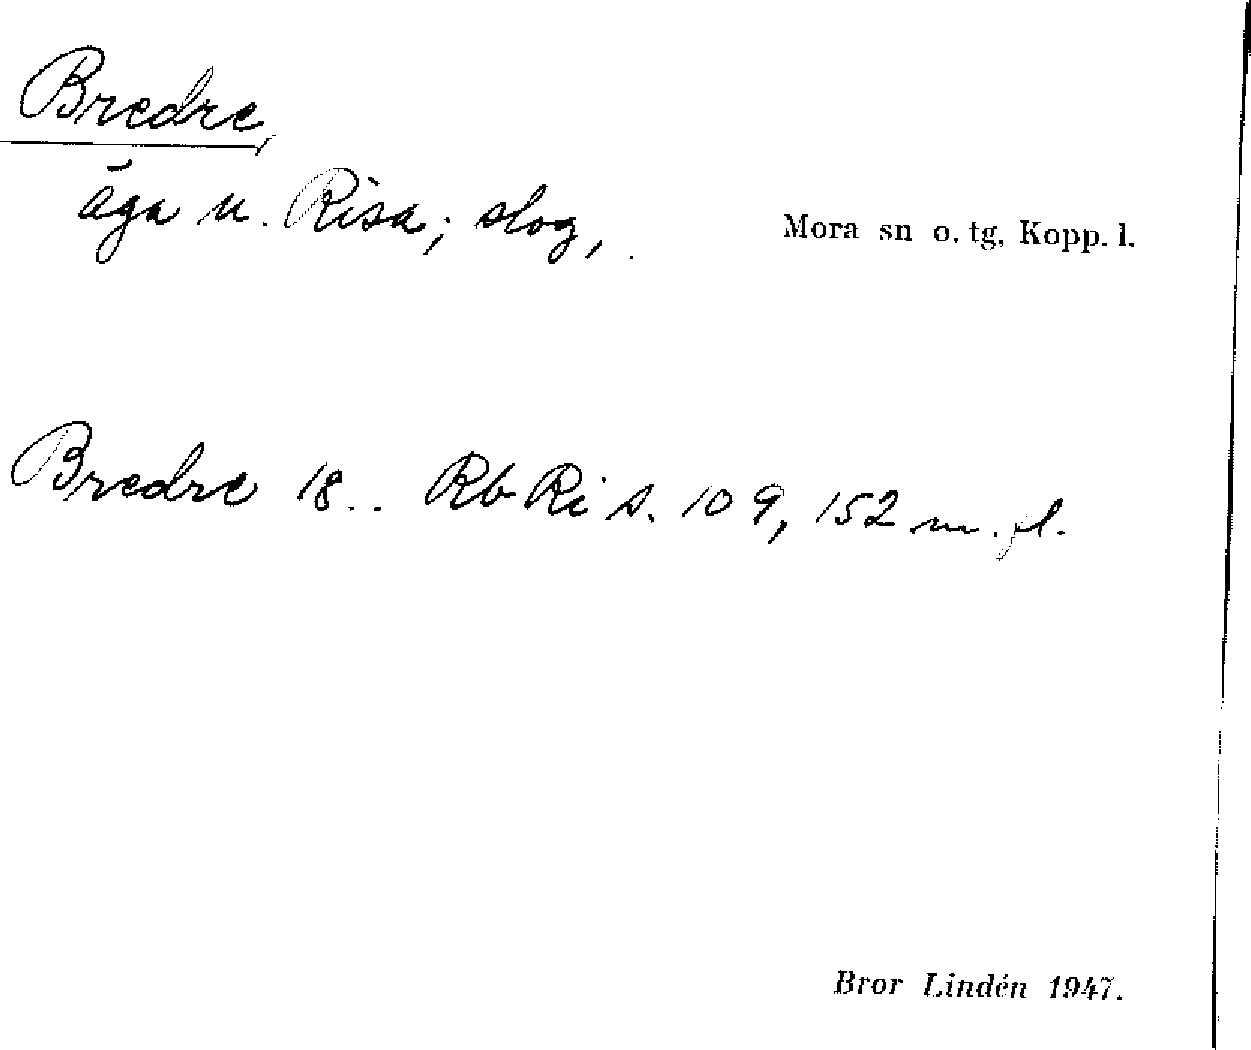 Bredre,
äga u. Risa; slog,
Mora sn o. tg, Kopp. l.
Bredre 18.. Rb Ri s. 109, 152 m. fl.
Bror Lindén 1947.